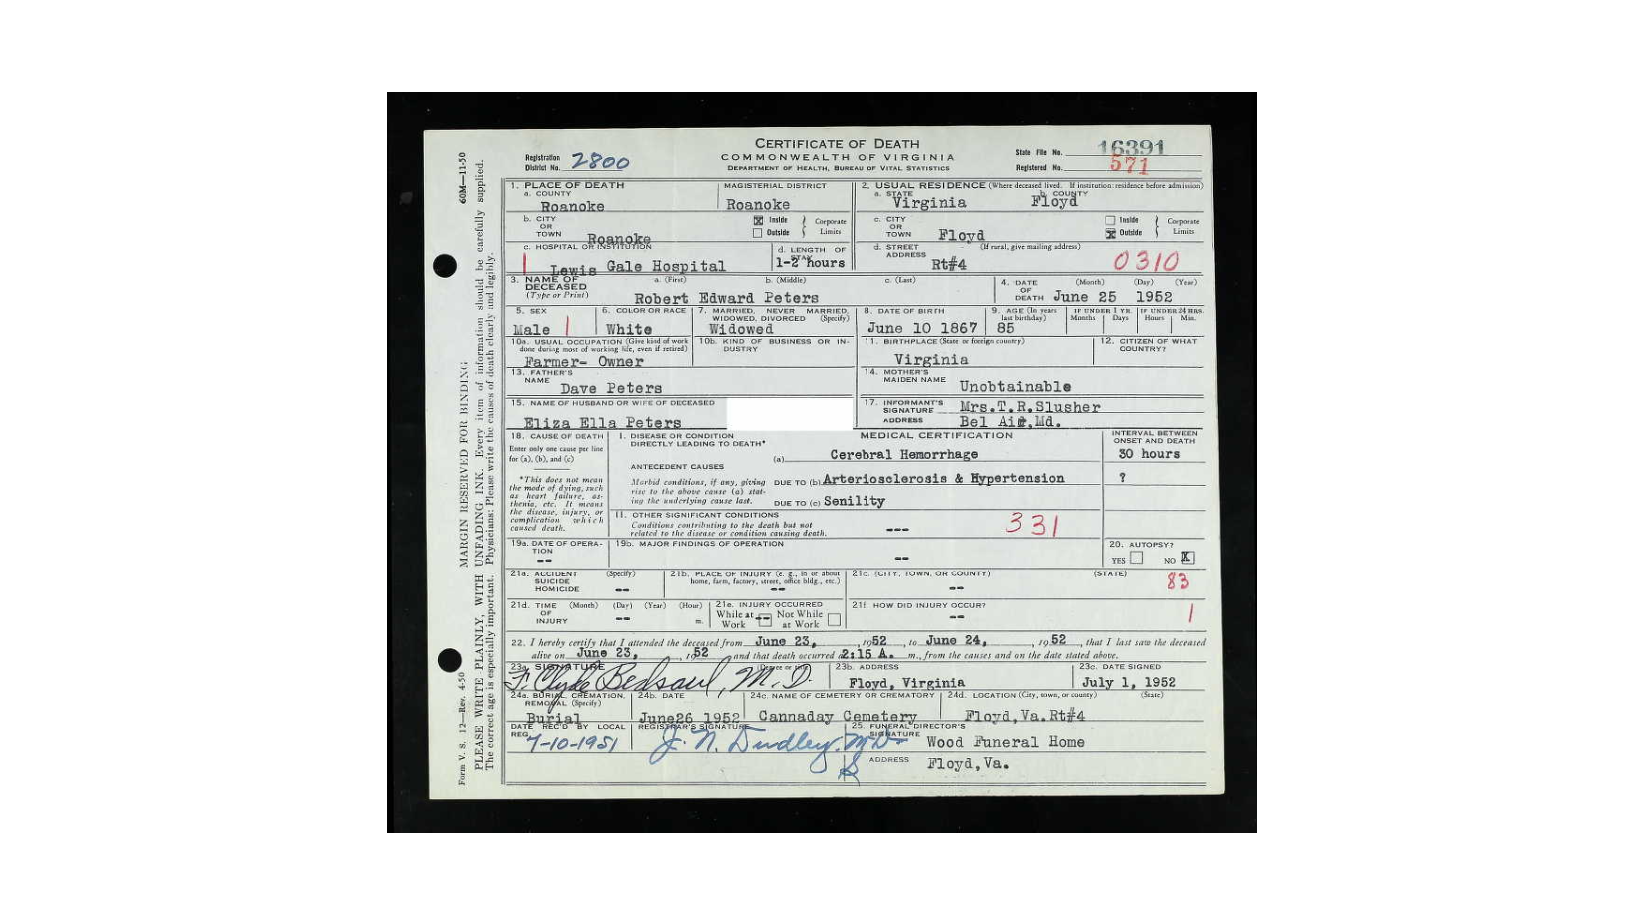 CERTIFICATE OF DEATH
COMMONWEALTH OF VIRGINIA
DEPARTMENT OF HEALTH, BUREAU OF VITAL STATISTICS
Registration District No. 2800
State File No. 16391
Registered No. 571
1. PLACE OF DEATH
a. COUNTY
Roanoke
MAGISTERIAL DISTRICT
Roanoke
b. CITY OR TOWN
Roanoke
Inside
Outside
Corporate Limits
c. HOSPITAL OR INSTITUTION
Lewis Gale Hospital
d. LENGTH OF STAY
1-2 hours
2. USUAL RESIDENCE (Where deceased lived. If institution: residence before admission)
a. STATE
Virginia
b. COUNTY
Floyd
c. CITY OR TOWN
Floyd
Inside
Outside
Corporate Limits
d. STREET ADDRESS
(If rural, give mailing address)
Rt#4
0310
3. NAME OF DECEASED
(Type or Print)
a. (First) b. (Middle) c. (Last)
Robert Edward Peters
4. DATE OF DEATH
(Month) (Day) (Year)
June 25 1952
5. SEX
Male
6. COLOR OR RACE
White
7. MARRIED, NEVER MARRIED, WIDOWED, DIVORCED (Specify)
Widowed
8. DATE OF BIRTH
June 10 1867
9. AGE (In years last birthday)
85
IF UNDER 1 YR.
Months Days
IF UNDER 24 HRS.
Hours Min.
10a. USUAL OCCUPATION (Give kind of work done during most of working life, even if retired)
Farmer- Owner
10b. KIND OF BUSINESS OR INDUSTRY
11. BIRTHPLACE (State or foreign country)
Virginia
12. CITIZEN OF WHAT COUNTRY?
13. FATHER'S NAME
Dave Peters
14. MOTHER'S MAIDEN NAME
Unobtainable
15. NAME OF HUSBAND OR WIFE OF DECEASED
Eliza Ella Peters
17. INFORMANT'S SIGNATURE
Mrs.T.R.Slusher
ADDRESS
Bel Air,Md.
18. CAUSE OF DEATH
Enter only one cause per line for (a), (b), and (c)
*This does not mean the mode of dying, such as heart failure, asthenia, etc. It means the disease, injury, or complication which caused death.
MEDICAL CERTIFICATION
INTERVAL BETWEEN ONSET AND DEATH
I. DISEASE OR CONDITION DIRECTLY LEADING TO DEATH*
(a) Cerebral Hemorrhage
30 hours
ANTECEDENT CAUSES
Morbid conditions, if any, giving rise to the above cause (a) stating the underlying cause last.
DUE TO (b) Arteriosclerosis & Hypertension
?
DUE TO (c) Senility
II. OTHER SIGNIFICANT CONDITIONS
Conditions contributing to the death but not related to the disease or condition causing death.
---
331
19a. DATE OF OPERATION
--
19b. MAJOR FINDINGS OF OPERATION
--
20. AUTOPSY?
YES NO X
21a. ACCIDENT SUICIDE HOMICIDE
(Specify)
--
21b. PLACE OF INJURY (e. g., in or about home, farm, factory, street, office bldg., etc.)
--
21c. (CITY, TOWN, OR COUNTY) (STATE)
--
83
21d. TIME OF INJURY
(Month) (Day) (Year) (Hour)
m.
--
21e. INJURY OCCURRED
While at Work
Not While at Work
--
21f HOW DID INJURY OCCUR?
--
1
22. I hereby certify that I attended the deceased from June 23, 1952 to June 24, 1952, that I last saw the deceased
alive on June 23, 1952 and that death occurred at 2:15 A. m., from the causes and on the date stated above.
23a. SIGNATURE
(Degree or title)
F. Clyde Bedsaul, M.D.
23b. ADDRESS
Floyd, Virginia
23c. DATE SIGNED
July 1, 1952
24a. BURIAL, CREMATION, REMOVAL (Specify)
Burial
24b. DATE
June26 1952
24c. NAME OF CEMETERY OR CREMATORY
Cannaday Cemetery
24d. LOCATION (City, town, or county) (State)
Floyd,Va.Rt#4
DATE REC'D BY LOCAL REG.
7-10-1951
REGISTRAR'S SIGNATURE
J. N. Dudley, M.D.
25. FUNERAL DIRECTOR'S SIGNATURE
Wood Funeral Home
ADDRESS
Floyd,Va.
60M—11-50
MARGIN RESERVED FOR BINDING
Form V. S. 112—Rev. 4-50
PLEASE WRITE PLAINLY, WITH UNFADING INK. Every item of information should be carefully supplied.
The correct age is especially important. Physicians: Please write the causes of death clearly and legibly.